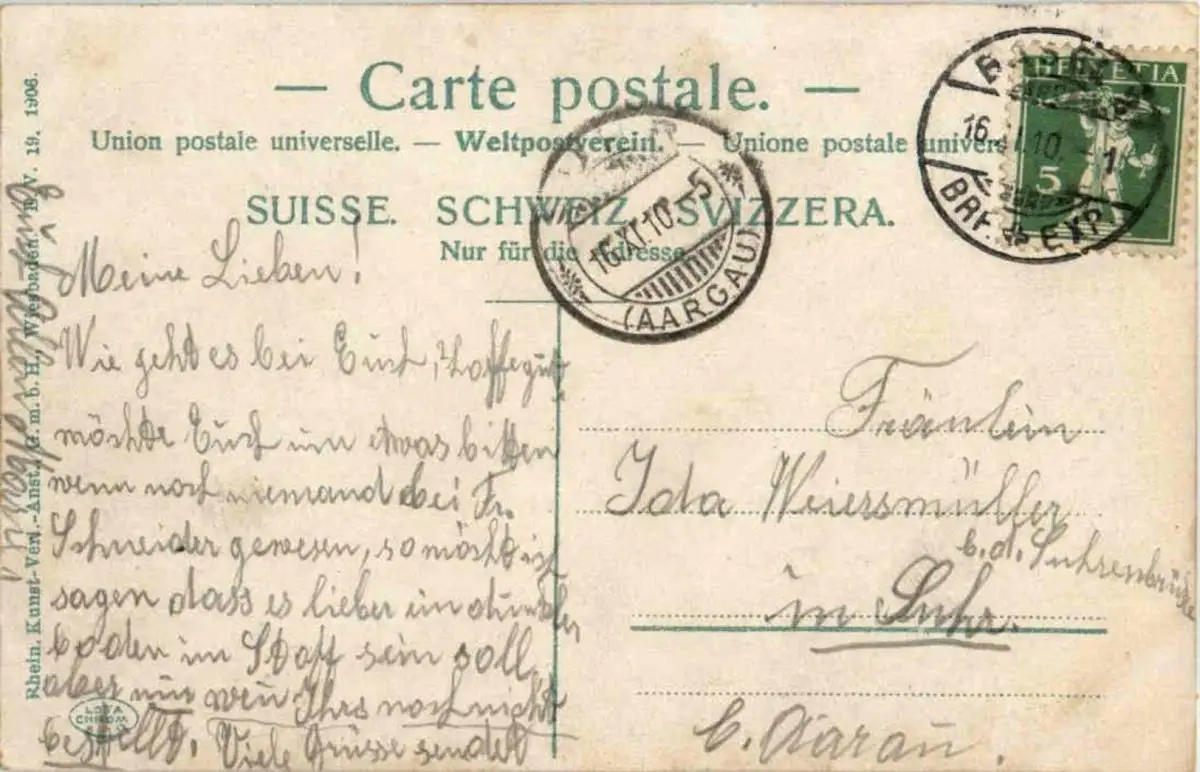 — Carte postale. —
Union postale universelle. — Weltpostverein. — Unione postale universale
SUISSE. SCHWEIZ. SVIZZERA.
Nur für die Adresse
BASEL
16. 10. 1
BRF. EXP.
HELVETIA
5
16 XI 10 - 5
(AARGAU)
Meine Lieben!
Wie geht es bei Euch, hoffe gut
möchte Euch um etwas bitten
wenn noch niemand bei Fr.
Schneider gewesen, so möcht ich
sagen dass es lieber ein dunkler
boden im Stoff sein soll,
aber nur wen Ihrs noch nicht
bestellt. Viele Grüsse sendet
Fräulein
Ida Weiersmüller
b. d. Suhrenbrücke
in Suhr.
b. Aarau.
Rhein. Kunst-Verl.-Anst., G. m. b. H., Wiesbaden. V. 19. 1906.